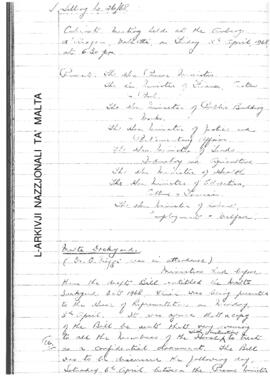 Sitting No. 26/68
Cabinet Meeting held at the Auberge
d'Aragon, Valletta, on Friday 5th April 1968
at 6.30 pm.
Present: The Hon. Prime Minister
The Hon Minister of Finance, Customs
& Port
The Hon Minister of Public Building
& Works
The Hon Minister of Justice and
Parliamentary Affairs
The Hon Minister of Trade
Industry and Agriculture
The Hon Minister of Health
The Hon Minister of Education,
Culture & Tourism
The Hon Minister of Labour,
Employment & Welfare
L-ARKIVJI NAZZJONALI TA' MALTA
Malta Drydocks
( was in attendance)
Ministers had before
them the draft Bill entitled the Malta
Drydocks Act 1968 which was being presented
to the House of Representatives on Monday
8th April. It was agreed that a copy
of the Bill be sent that very evening
to all the Members of the House
as a confidential document. The Bill
was to be discussed the following day,
Saturday 6th April between the Prime Minister